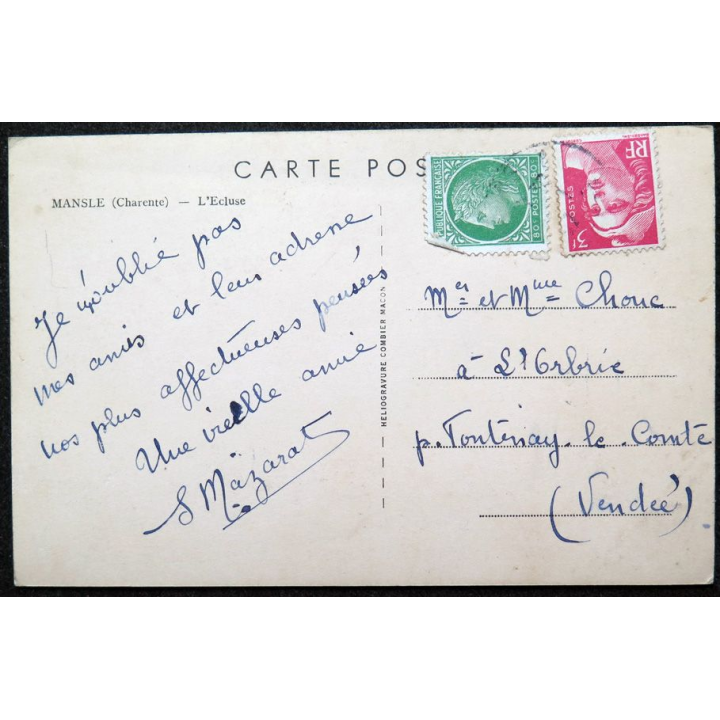 CARTE POS
MANSLE (Charente) — L'Ecluse
Je n'oublie pas
mes amis et leur adresse
nos plus affectueuses pensées
Une vieille amie
S Mazarat
HELIOGRAVURE COMBIER MACON
RÉPUBLIQUE FRANÇAISE
80c POSTES 80c
RF
POSTES
3F
Mr et Mme Chouc
à L'Orbrie
p. Fontenay-le-Comte
(Vendée)